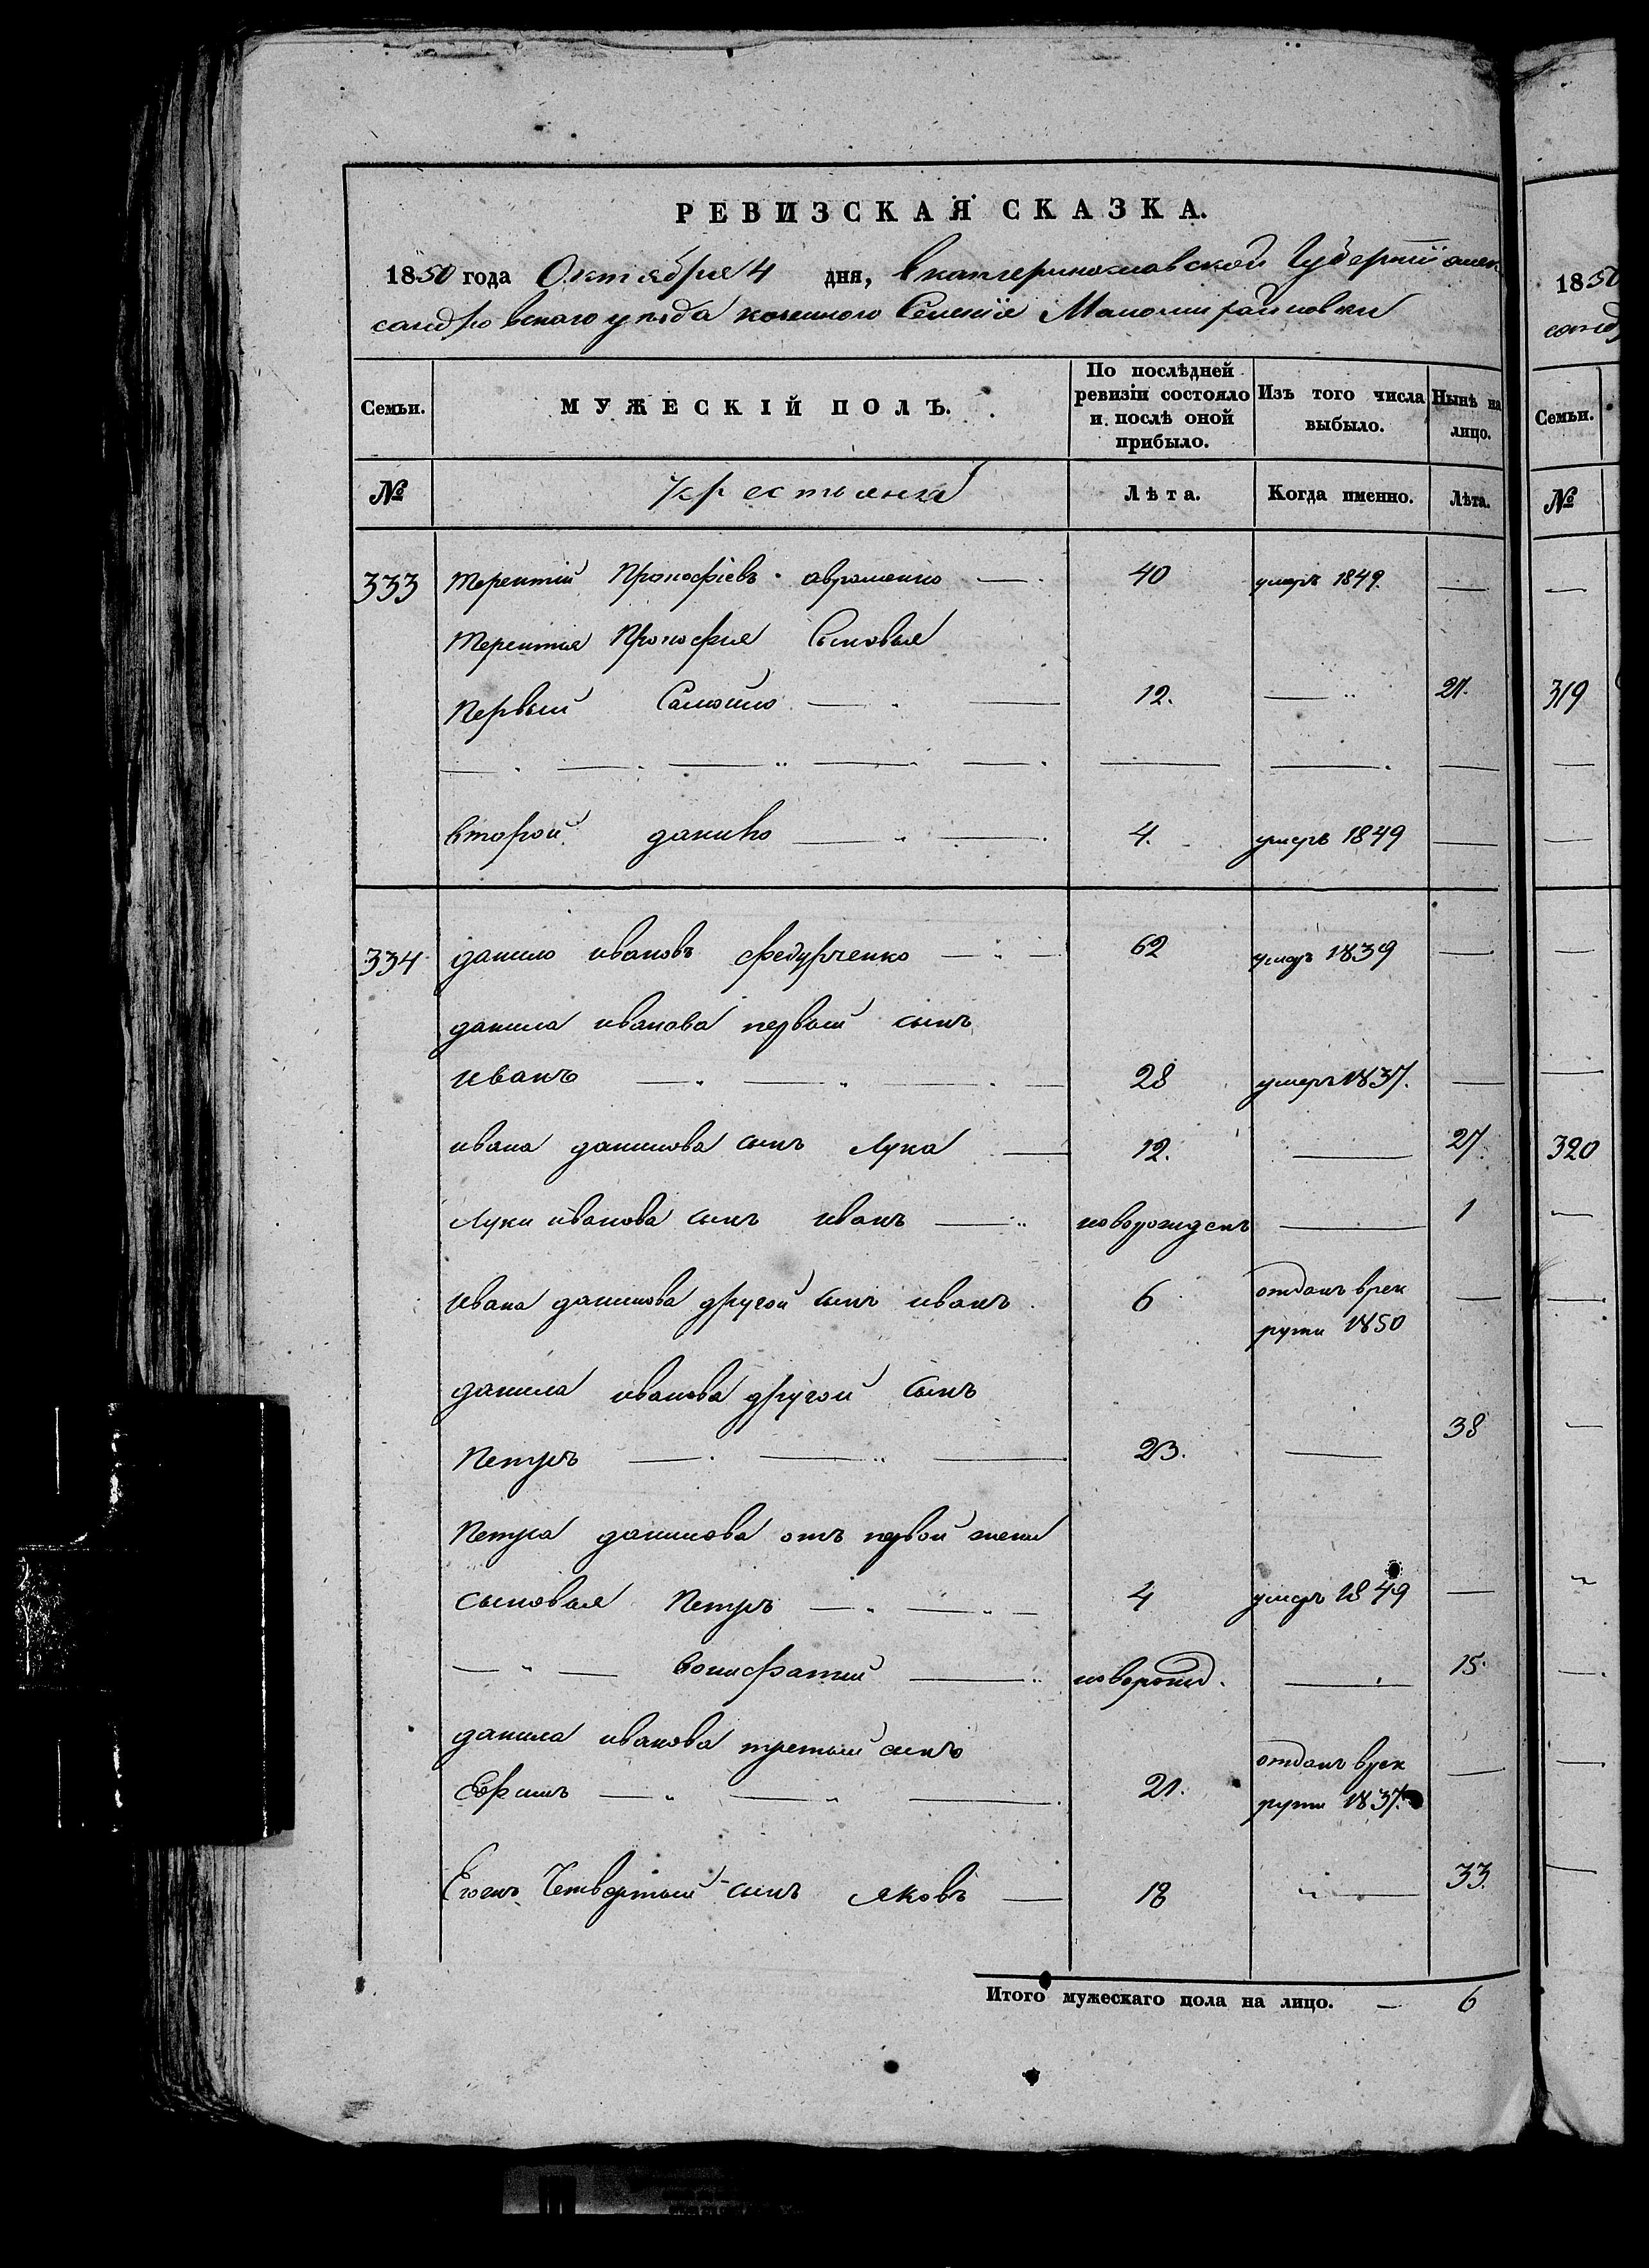 РЕВИЗСКАЯ СКАЗКА.
1850 года Октября 4 дня, Екатеринославской Губернiи алек
сандровскаго уезда казенного Селенiя Маломихайловки
Семьи.
МУЖЕСКІЙ ПОЛЪ.
По послѣдней ревизіи состояло и послѣ оной прибыло.
Изъ того числа выбыло.
Нынѣ на лицо.
№
крестьяне
Лѣта.
Когда именно.
Лѣта.
333 Терентий Прокофiевъ авраменко — 40 умеръ 1849. —
Терентия Прокофия Сыновья
Первый Самойло — 12. — 27.
второй данило — 4. умеръ 1849 —
334 данило ивановъ федурченко — 62 умеръ 1839 —
данила иванова первый сынъ
иванъ — 28 умеръ 1837. —
ивана данилова сынъ Лука — 12. — 27.
Луки иванова сынъ иванъ — новорожденъ — 1
ивана данилова другой сынъ иванъ 6 отданъ врек —
руты 1850
данила иванова другой сынъ
Петръ — 23. — 38
Петра данилова отъ первой жены
сыновья Петръ — 4 умеръ 1849 —
— вонифатий — новорожд. — 15.
данила иванова третый сынъ
Ефимъ — 21. отданъ врек —
руты 1837.
Четвертый сынъ яковъ — 18 — 33.
Итого мужескаго пола на лицо. — 6
1850
санд
Семьи.
№
319
320